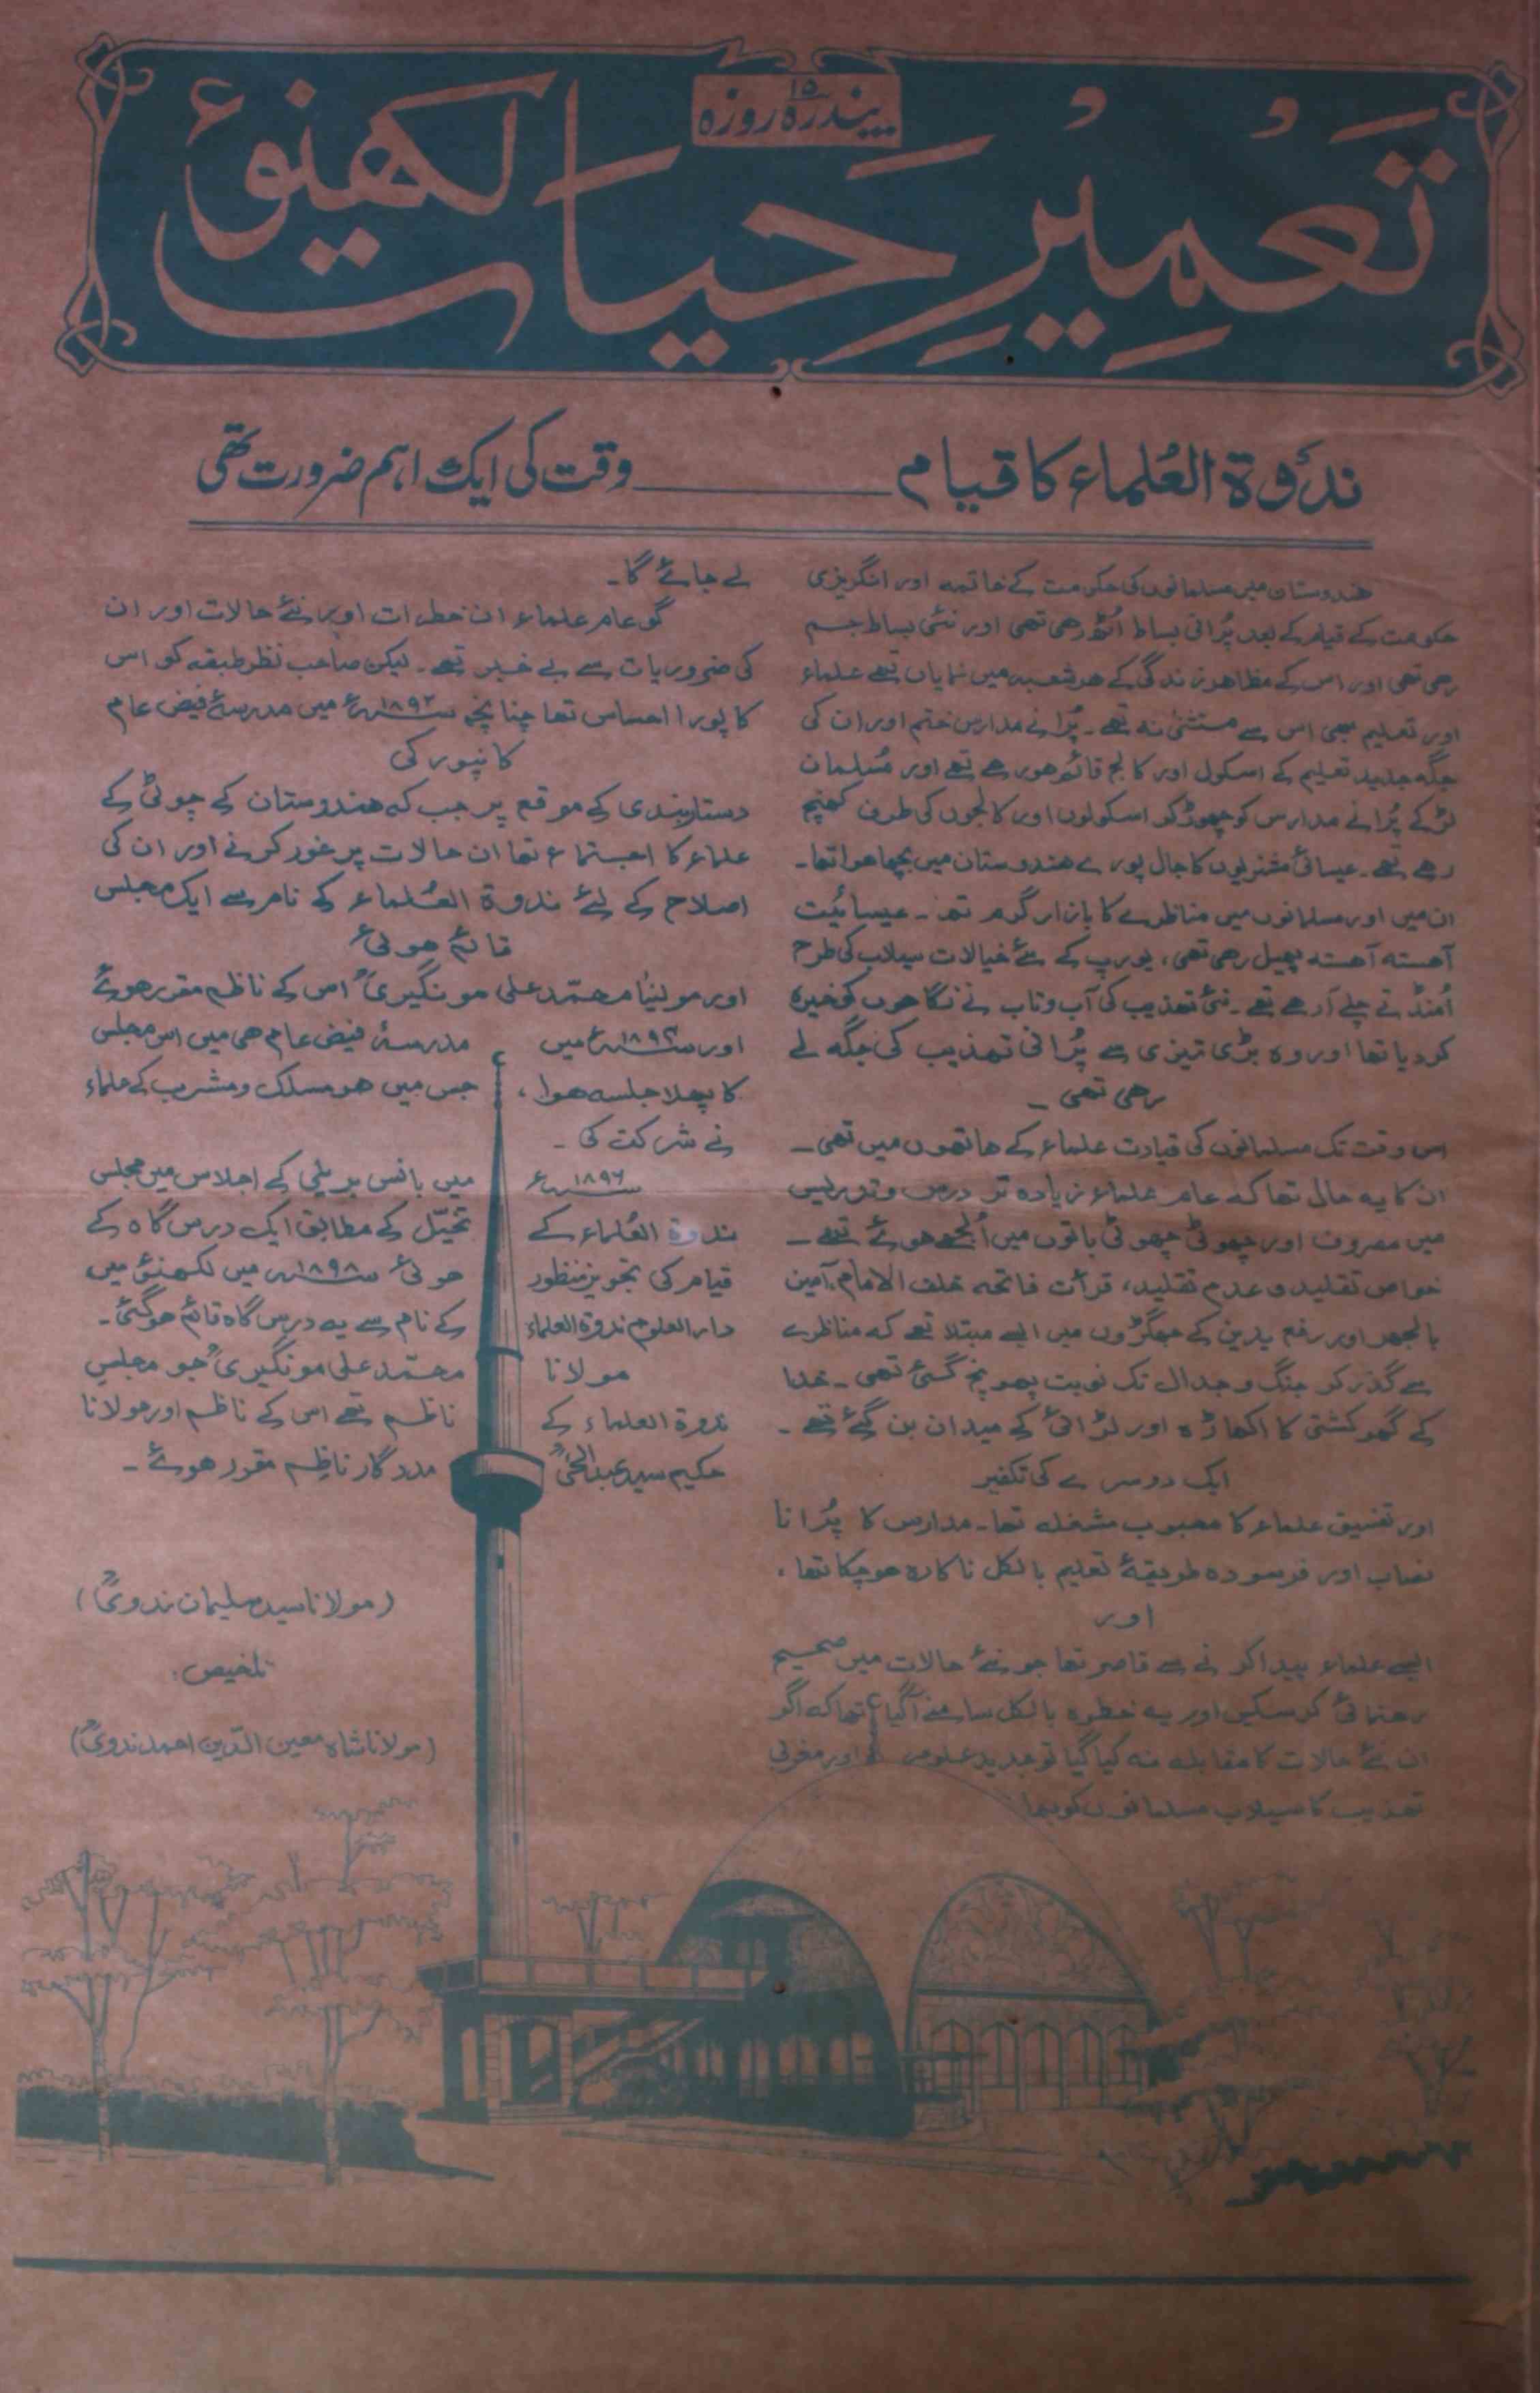 پندرہ ۱۵ روزہ
تعمیرِ حیات لکھنؤ
ندوۃ العُلماء کا قیام ــــــ وقت کی ایک اہم ضرورت تھی
ھندوستان میں مسلمانوں کی حکومت کے خاتمہ اور انگریزی
حکومت کے قیام کے بعد پُرانی بساط اُٹھ رھی تھی اور نئی بساط جم
رھی تھی اور اس کے مظاھر زندگی کے ھر شعبہ میں نمایاں تھے علماء
اور تعلیم بھی اس سے مستثنیٰ نہ تھے۔ پُرانے مدارس ختم اور ان کی
جگہ جدید تعلیم کے اسکول اور کالج قائم ھورھے تھے اور مُسلمان
لڑکے پُرانے مدارس کو چھوڑ کر اسکولوں اور کالجوں کی طرف کھنچ
رھے تھے۔ عیسائی مشنریوں کا جال پورے ھندوستان میں بچھا ھوا تھا۔
ان میں اور مسلمانوں میں مناظرے کا بازار گرم تھا۔ عیسائیت
آھستہ آھستہ پھیل رھی تھی، یورپ کے نئے خیالات سیلاب کی طرح
اُمنڈتے چلے آرھے تھے۔ نئی تھذیب کی آب و تاب نے نگاھوں کو خیرہ
کردیا تھا اور وہ بڑی تیزی سے پُرانی تھذیب کی جگہ لے
رھی تھی ۔
اس وقت تک مسلمانوں کی قیادت علماء کے ھاتھوں میں تھی۔
ان کا یہ حال تھا کہ عام علماء زیادہ تر درس و تدریس
میں مصروف اور چھوٹی چھوٹی باتوں میں اُلجھے ھوئے تھے۔
خواص تقلید و عدم تقلید، قرأت فاتحہ خلف الامام، آمین
بالجھر اور رفع یدین کے جھگڑوں میں ایسے مبتلا تھے کہ مناظرے
سے گذر کر جنگ و جدال تک نوبت پھونچ گئی تھی۔ خدا
کے گھر کشتی کا اکھاڑہ اور لڑائی کے میدان بن گئے تھے۔
ایک دوسرے کی تکفیر
اور تفسیق علماء کا محبوب مشغلہ تھا۔ مدارس کا پُرانا
نصاب اور فرسودہ طریقۂ تعلیم بالکل ناکارہ ھوچکا تھا،
اور
ایسے علماء پیدا کرنے سے قاصر تھا جو نئے حالات میں صحیح
رھنمائی کرسکیں اور یہ خطرہ بالکل سامنے آگیا تھا کہ اگر
ان نئے حالات کا مقابلہ نہ کیا گیا تو جدید علوم اور مغربی
تھذیب کا سیلاب مسلمانوں کو بھا
لے جائے گا۔
گو عام علماء ان خطرات اور نئے حالات اور ان
کی ضروریات سے بے خبر تھے۔ لیکن صاحب نظر طبقہ کو اس
کا پورا احساس تھا چنانچہ سنہ ۱۸۹۲ء میں مدرسۂ فیض عام
کانپور کی
دستاربندی کے موقع پر جب کہ ھندوستان کے چوٹی کے
علماء کا اجتماع تھا ان حالات پر غور کرنے اور ان کی
اصلاح کے لئے ندوۃ العُلماء کے نام سے ایک مجلس
قائم ھوئی
اور مولینٰا محمّد علی مونگیریؒ اس کے ناظم مقرر ھوئے
اور سنہ ۱۸۹۳ء میں مدرسۂ فیض عام ھی میں اس مجلس
کا پھلا جلسہ ھوا، جس میں ھر مسلک و مشرب کے علماء
نے شرکت کی۔
سنہ ۱۸۹۶ء میں بانس بریلی کے اجلاس میں مجلس
ندوۃ العُلماء کے تخیّل کے مطابق ایک درس گاہ کے
قیام کی تجویز منظور ھوئی سنہ ۱۸۹۸ء میں لکھنؤ میں
دارالعلوم ندوۃ العلماء کے نام سے یہ درس گاہ قائم ھوگئی۔
مولانا محمّد علی مونگیریؒ جو مجلس
ندوۃ العلماء کے ناظم تھے اس کے ناظم اور مولانا
حکیم سید عبدالحیؒ مددگار ناظم مقرر ھوئے۔
(مولانا سید سلیمان ندویؒ)
تلخیص:
(مولانا شاہ معین الدّین احمد ندویؒ)